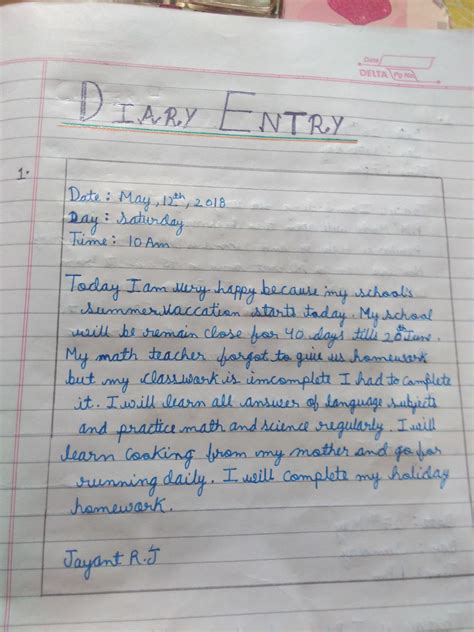 Date
DELTA Pg No.
DIARY ENTRY
1.
Date : May, 12th, 2018
Day : Saturday
Time : 10 Am
Today I am very happy because my school's
summer vaccation starts today. My school
will be remain close for 40 days tills 20th June.
My math teacher forgot to give us homework
but my classwork is imcomplete I had to complete
it. I will learn all answer of language subjects
and practice math and science regularly. I will
learn cooking from my mother and go for
running daily. I will complete my holiday
homework.
Jayant R.J